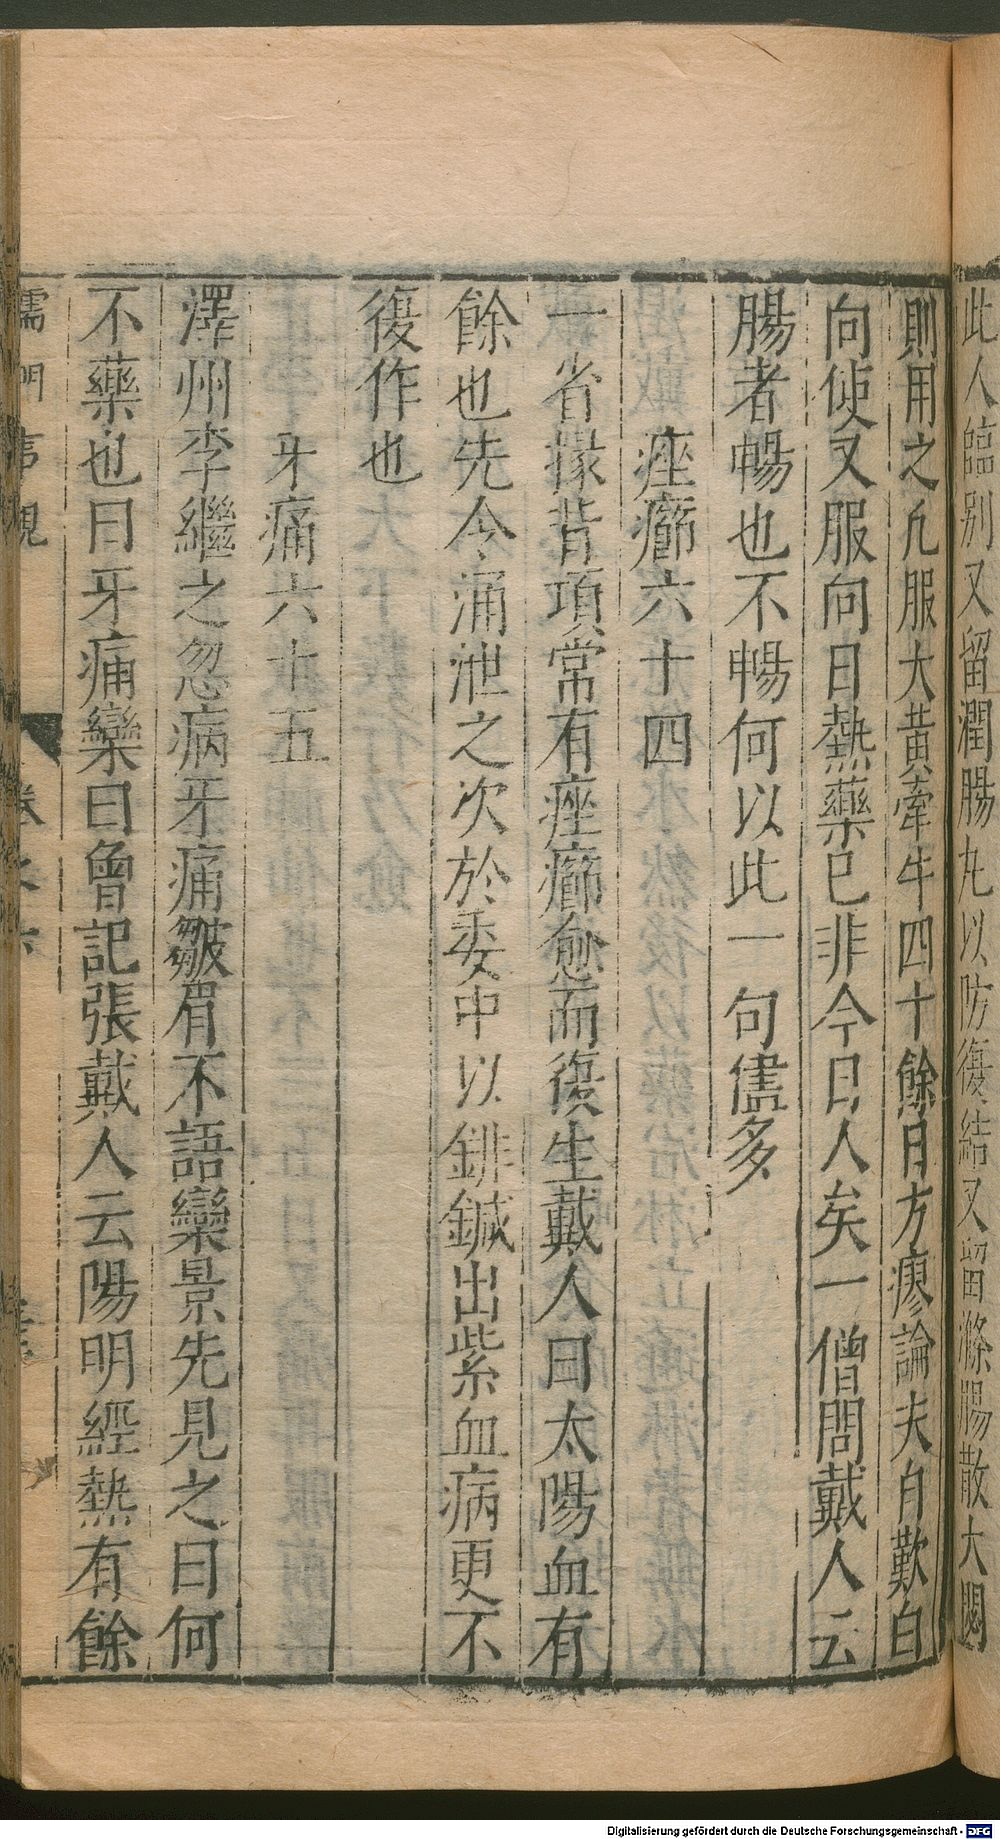 此人臨別又留潤腸丸以防復結又留滌腸散大閟
則用之凡服大黃牽牛四十餘日方瘳論夫自歎曰
向使又服向日熱藥已非今日人矣一僧問戴人云
腸者暢也不暢何以此一句儘多
痤癤六十四
一省掾背項常有痤癤愈而復生戴人曰太陽血有
餘也先令涌泄之次於委中以𨦅鍼出紫血病更不
復作也
牙痛六十五
澤州李繼之忽病牙痛皺眉不語欒景先見之曰何
不藥也曰牙痛欒曰曾記張戴人云陽明經熱有餘
儒門事親 卷之六
Digitalisierung gefördert durch die Deutsche Forschungsgemeinschaft - DFG